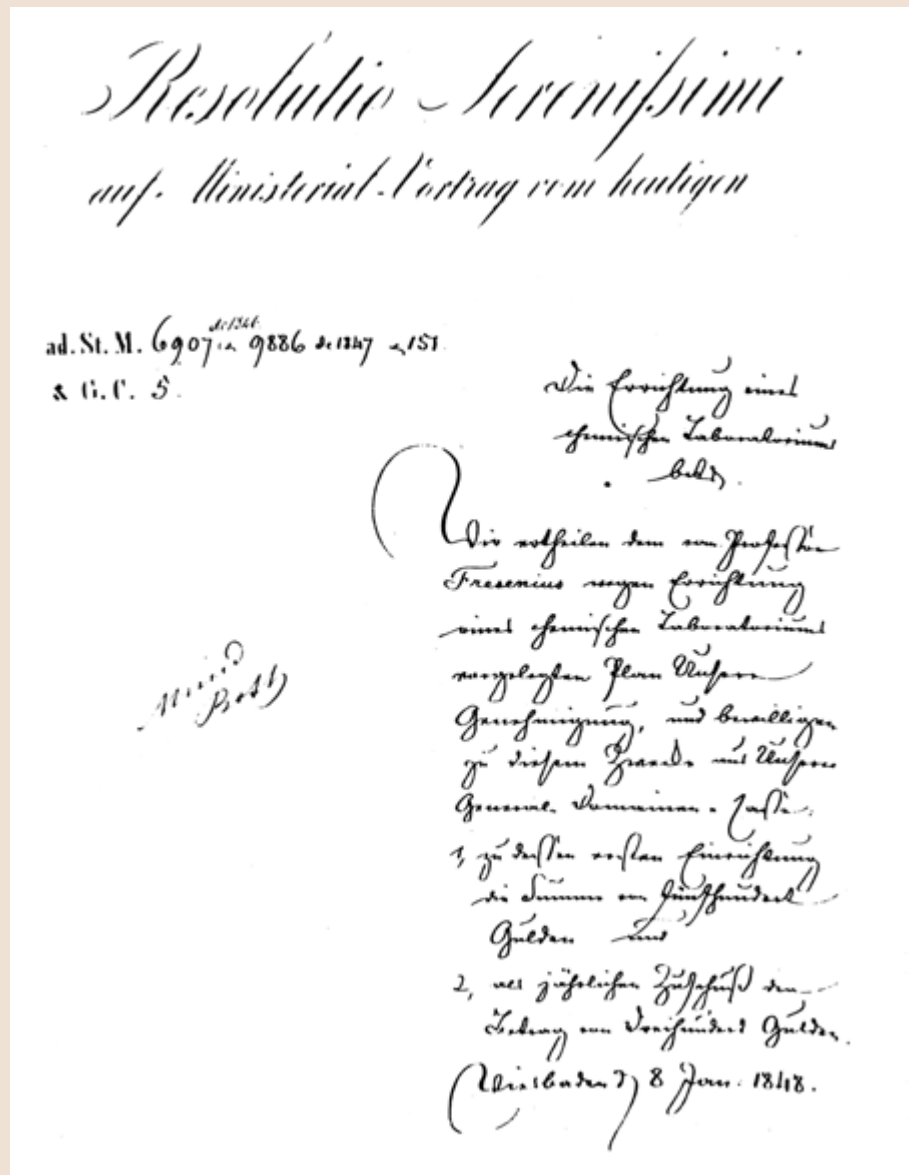 Resolutio Serenissimi
auf Ministerial-Vortrag vom heutigen
de 1846
ad. St. M. 6907 9886 de 1847 151
& G. C. 5.
Die Errichtung eines
chemischen Laboratoriums
betr.
Wir ertheilen dem vom Professor
Fresenius wegen Errichtung
eines chemischen Laboratoriums
vorgelegten Plan Unsere
Genehmigung, und bewilligen
zu diesem Zwecke aus Unserer
General-Domainen-Casse:
1, zu dessen ersten Einrichtung
die Summe von fünfhundert
Gulden und
2, als jährlichen Zuschuß den
Betrag von Dreihundert Gulden.
Wiesbaden d 8 Jan. 1848.